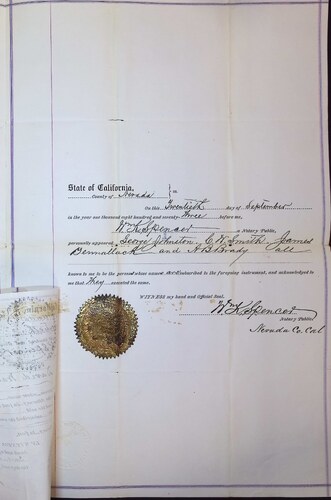 State of California, } ss
County of Nevada
On this Twentieth day of September
in the year one thousand eight hundred and seventy-three before me,
Wm K Spencer a Notary Public,
personally appeared George Johnston, E. W. Smith, James
Dennalluck and N. B. Brody all
known to me to be the persons whose names are subscribed to the foregoing instrument, and acknowledged to
me that They executed the same.
WITNESS my hand and Official Seal.
Wm K Spencer
Notary Public
Nevada Co. Cal